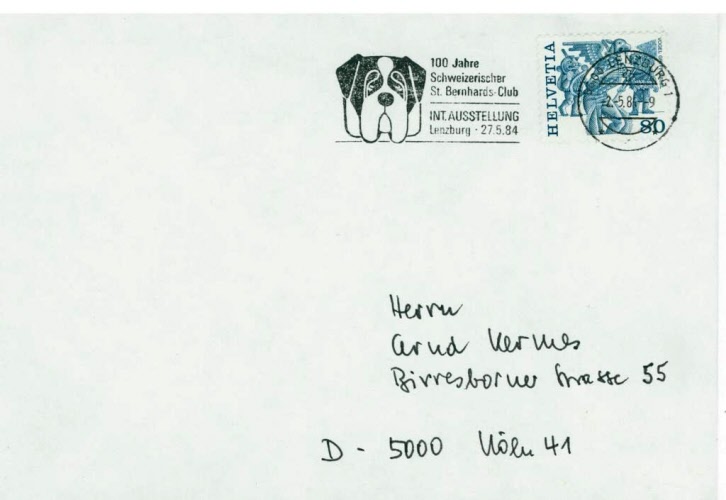 100 Jahre
Schweizerischer
St. Bernhards-Club
INT. AUSSTELLUNG
Lenzburg · 27.5.84
HELVETIA
80
LENZBURG 1
-2.-5.84--9
Herrn
Arnd Kermes
Birresborner Strasse 55
D - 5000 Köln 41